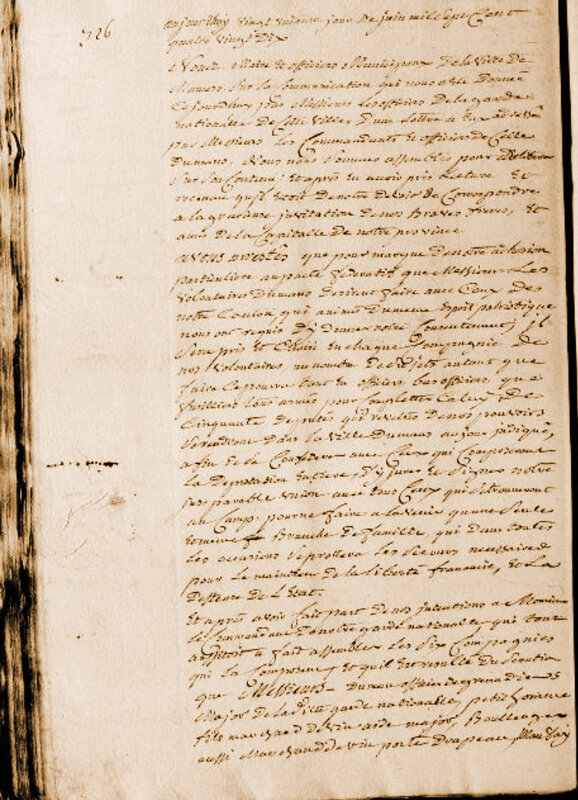 326
aujourd'huy vingt unieme jour de juin mil sept cent
quatre vingt dix
Nous Maire et officiers Municipaux de la Ville de
Mamers, sur la Communication qui nous a été donnée
Ce jourd'huy par Messieurs les officiers de la garde
nationale de Cette Ville, d'une lettre a Eux adressée
par Messieurs les Commandants et officiers de Celle
Dumans, Nous nous sommes assemblés pour Deliberer
sur son Contenu; Et après en avoir pris lecture Et
reconnu qu'il étoit de notre devoir de Correspondre
a la gracieuse invitation de nos Braves freres, Et
amis de la Capitalle de notre province
avons arrestés que pour marque de notre adhesion
particuliere au pacte federatif que Messieurs Les
Volontaires Dumans desirent faire avec Ceux de
notre Canton, qui animés du meme Esprit patriotique
nous ont requis d'y donner notre Consentement, il
sera pris et Choisi en chaque Compagnie de
nos Volontaires, un nombre de sujets autant que
faire Ce pourra tant en officiers bas officiers, que
fusilliers tous armés pour Completter Celuy de
Cinquante deputés qui revetus de nos pouvoirs
se rendront dans la ville Dumans au jour indiqué,
afin de se Confederer avec Ceux qui Composeront
la Deputation Entiere, d'y jurer et signer notre
inseparable union avec tous Ceux qui se trouveront
au Camp, pour ne faire a l'avenir qu'une seule
et meme Branche de famille, qui dans toutes
les occasions se prettera les secours necessaires
pour le maintien de la liberté française, et La
deffense de L'Etat.
Et après avoir fait part de nos intentions a Monsieur
le Commandant de notre garde nationalle, qui tout
aussitôt a fait assembler les Six Compagnies
qui la Composent, Et qu'il Est resulté du scrutin
que Messieurs Dumans officier de grenadiers
Major de la dite garde nationalle, petit
fils marchand de vin aide major, Baullenger
aussi Marchand de vin porte drapeau,